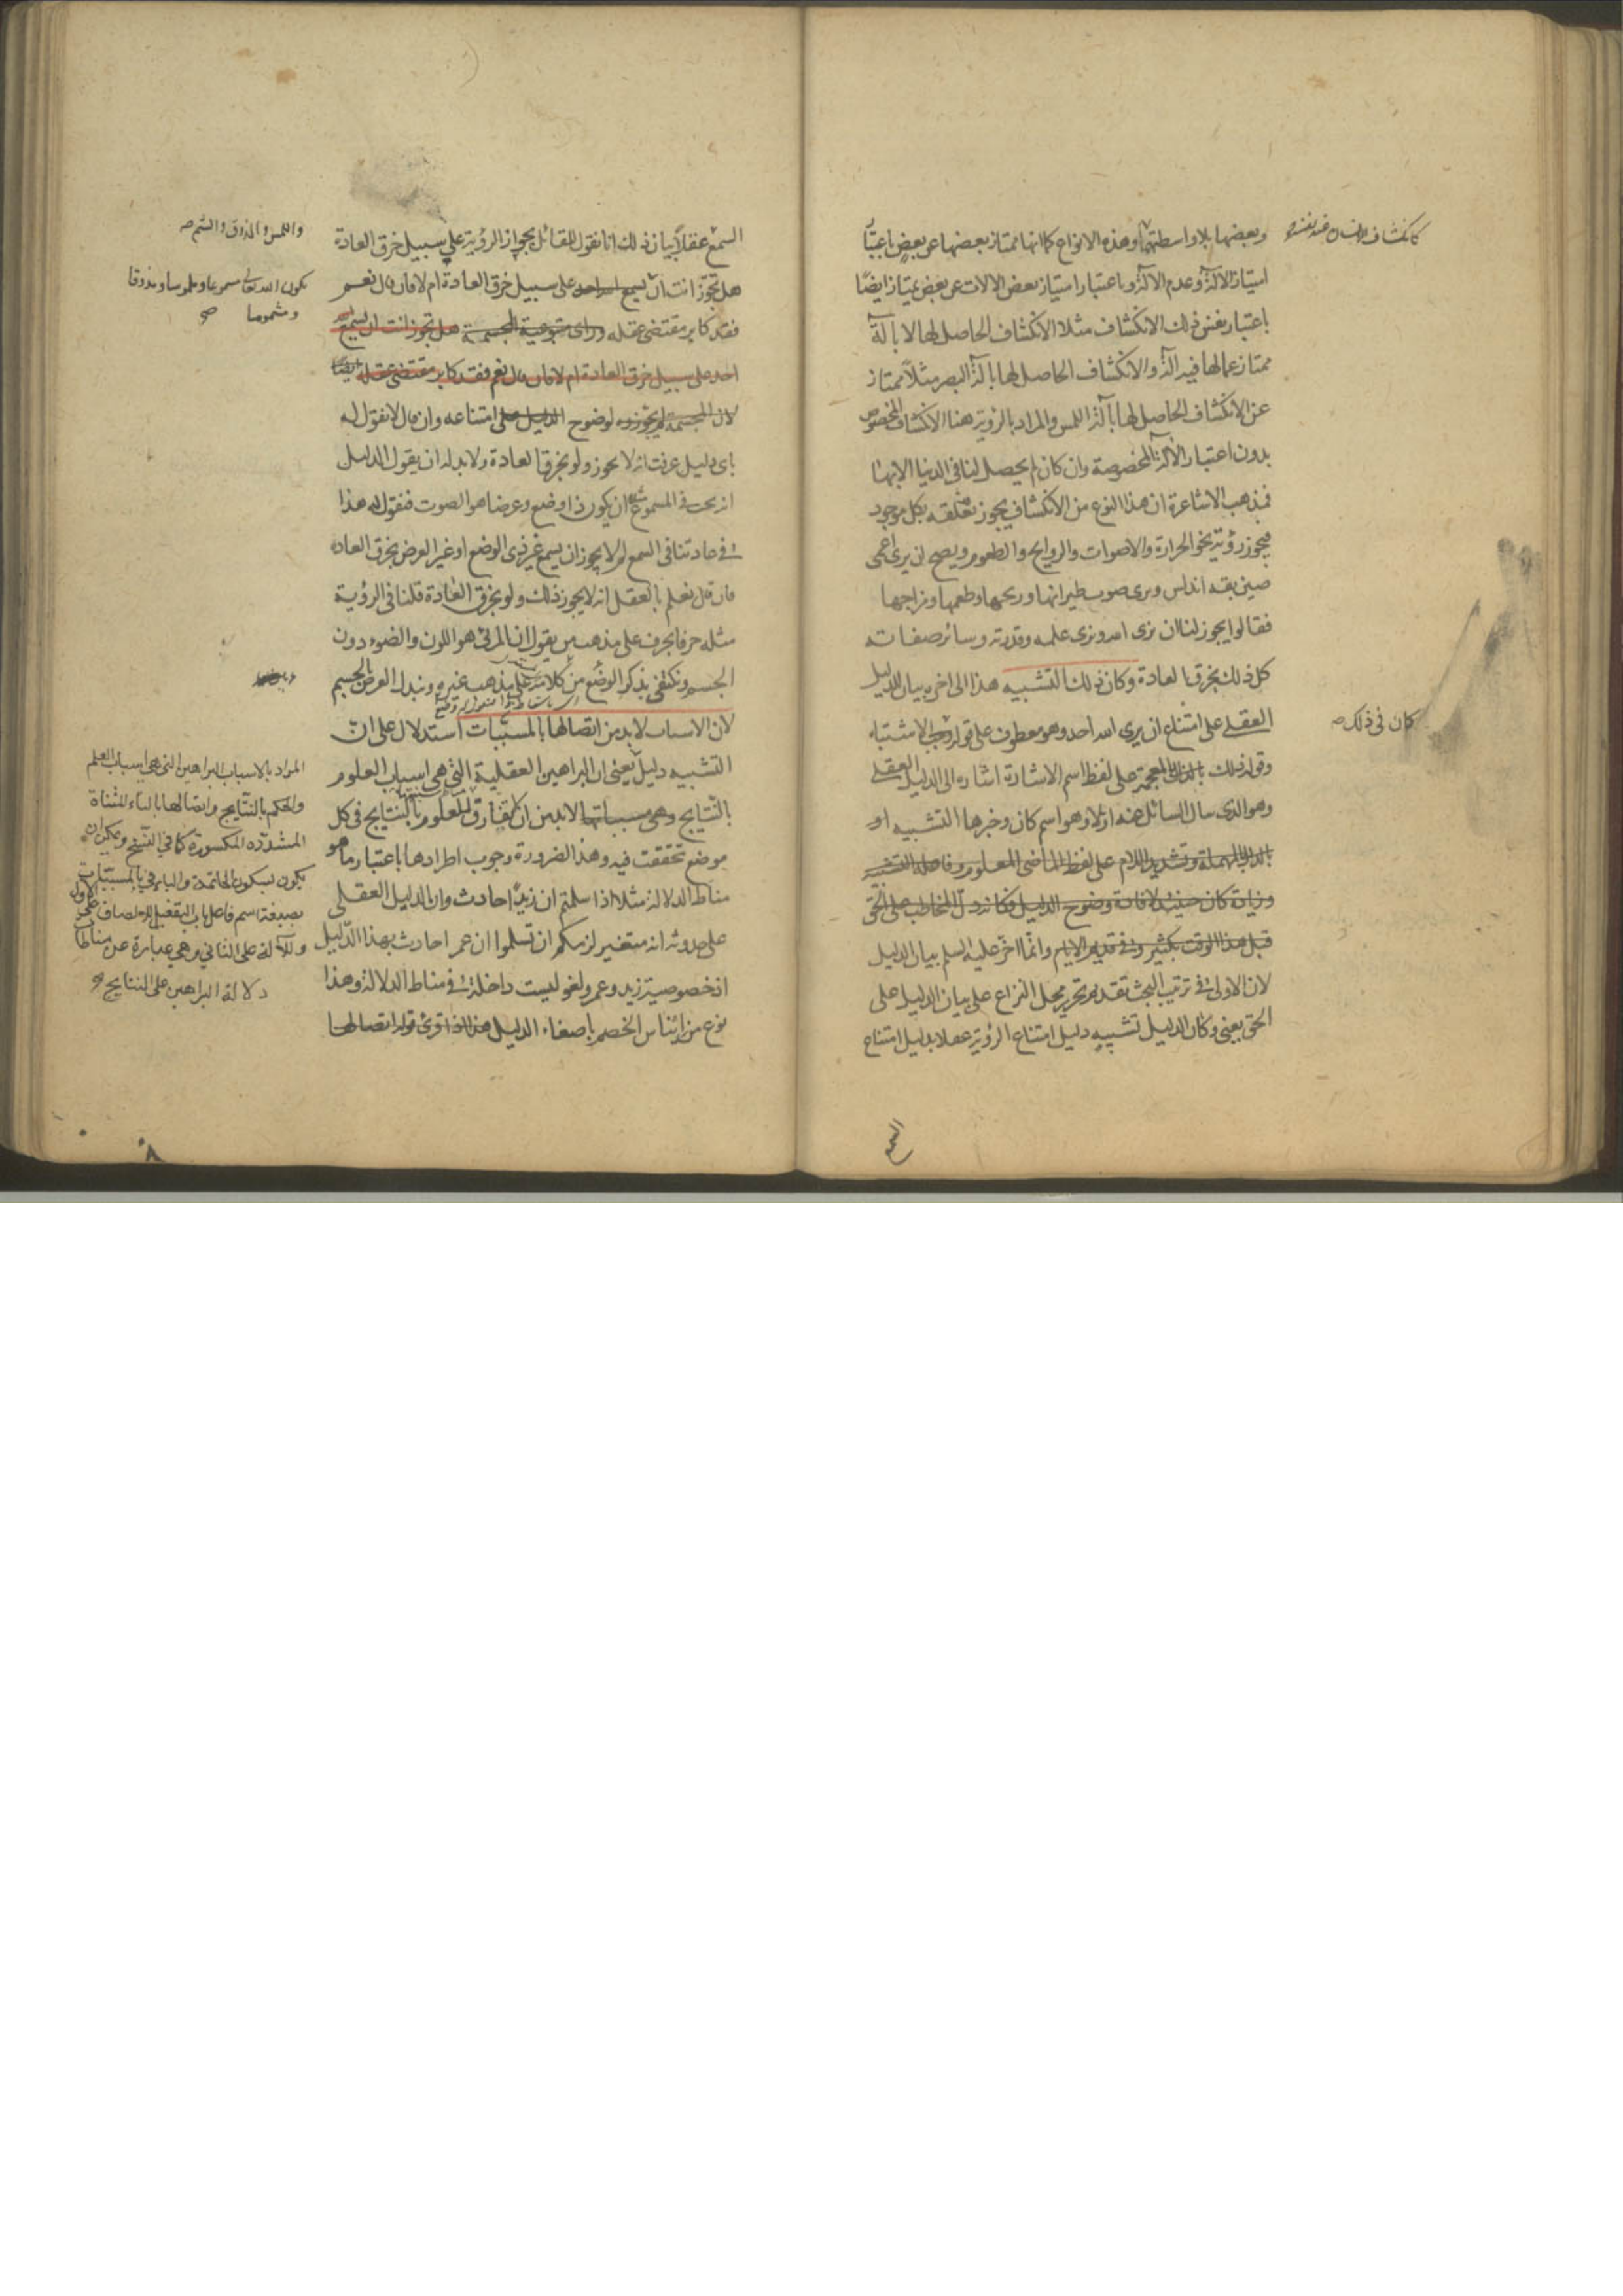 وبعضها بلا واسطتهما وهذه الانواع كما انها ممتاز بعضها عن بعض باعتبار
كانكشاف الانسان عند نفسه
امتياز الآلة وعدم الآلة وباعتبار امتياز بعض الالات عن بعض يمتاز ايضًا
باعتبار نفس ذلك الانكشاف مثلا الانكشاف الحاصل لها لا بآلة
ممتاز عما لها فيه آلة والانكشاف الحاصل لها بآلة البصر مثلاً ممتاز
عن الانكشاف الحاصل لها بآلة اللمس والمراد بالرؤية هنا الانكشاف المخصوص
بدون اعتبار الآلة المخصوصة وان كان لم يحصل لنا في الدنيا الا بها
فمذهب الاشاعرة ان هذا النوع من الانكشاف يجوز تعلقه بكل موجود
فيجوز رؤية نحو الحرارة والاصوات والروايح والطعوم ويصح ان يرى اعمى
صين بقة اندلس ويرى صوت طيرانها وريحها وطعمها ومزاجها
فقالوا يجوز لنا ان نرى الله ونرى علمه وقدرته وسائر صفاته
كل ذلك بخرق العادة وكان ذلك التشبيه هذا الى اخره بيان الدليل
العقلي على امتناع ان يرى الله احد وهو معطوف على قوله الاشتباه
كان في ذلك
وقوله ذلك بالذال المعجمة على لفظ اسم الاشارة اشارة الى الدليل العقلي
وهو الذي سال السائل عنه اولا وهو اسم كان وخبرها التشبيه او
بالدال المهملة وتشديد اللام على لفظ الماضي المعلوم وفاعله التشبيه
وزيادة كان حينئذ لافادة وضوح الدليل فكانه دل المخاطب على الحق
قبل هذا الوقت بكثير وفي قديم الايام وانما اخر عليه السلم بيان الدليل
لان الاولى في ترتيب البحث تقديم تحرير محل النزاع على بيان الدليل على
الحق يعني وكان الدليل تشبيه دليل امتناع الرؤية عقلا بدليل امتناع
السمع
السمع عقلاً بيان ذلك انا نقول للقائل بجواز الرؤية على سبيل خرق العادة
واللمس والذوق والشم
هل تجوز انت ان يسمع احد على سبيل خرق العادة ام لا فان قال نعم
يكون الله تعالى مسموعا وملموسا ومذوقا
ومشموما
فقد كابر مقتضى عقله هل تجوز انت ان يسمع
احد على سبيل خرق العادة ام لا فان قال نعم فقد كابر مقتضى عقله ايضًا
لان المجسمة لم يجوزوه لوضوح الدليل على امتناعه وان قال لا نقول له
باي دليل عرفت انه لا يجوز ولو بخرق العادة ولا بد له ان يقول الدليل
انه يجب في المسموع ان يكون ذا وضع وعرضا هو الصوت فنقول له هذا
في عادتنا في السمع لم لا يجوز ان يسمع غير ذي الوضع او غير العرض بخرق العادة
فان قال نعلم بالعقل انه لا يجوز ذلك ولو بخرق العادة قلنا في الرؤية
مثله حرفا بحرف على مذهب من يقول ان المرئي هو اللون والضوء دون
الجسم ونكتفي بذكر الوضع من كلامه على مذهب غيره ونبدل العرض بالجسم
لان الاسباب لا بد من اتصالها بالمسببات استدلال على ان
التشبيه دليل يعني ان البراهين العقلية التي هي اسباب العلوم
بالنتايج وهي مسبباتها لا بد من ان يفارق للعلوم بالنتايج في كل
موضع تحققت فيه وهذا الضرورة وجوب اطرادها باعتبار ما هو
مناط الدلالة مثلا اذا سلمتم ان زيدًا حادث وان الدليل العقلي
على حدوثه انه متغير لزمكم ان تسلموا ان عمرا حادث بهذا الدليل
اذ خصوصية زيد وعمرو لغو ليست داخلة في مناط الدلالة وهذا
نوع من ايناس الخصم باصغاء الدليل هذا اذا قرئ قوله اتصالها
المراد بالاسباب البراهين التي هي اسباب العلم
والحكم بالنتايج واتصالها بالتاء المثناة
المشددة المكسورة كما في النسخ ويمكن ان
يكون بسكون الخاتمة والباء في بالمسببات
بصيغة اسم فاعل باب التفعيل
وللآلة على الثاني وهي عبارة عن مناط
دلالة البراهين على النتايج